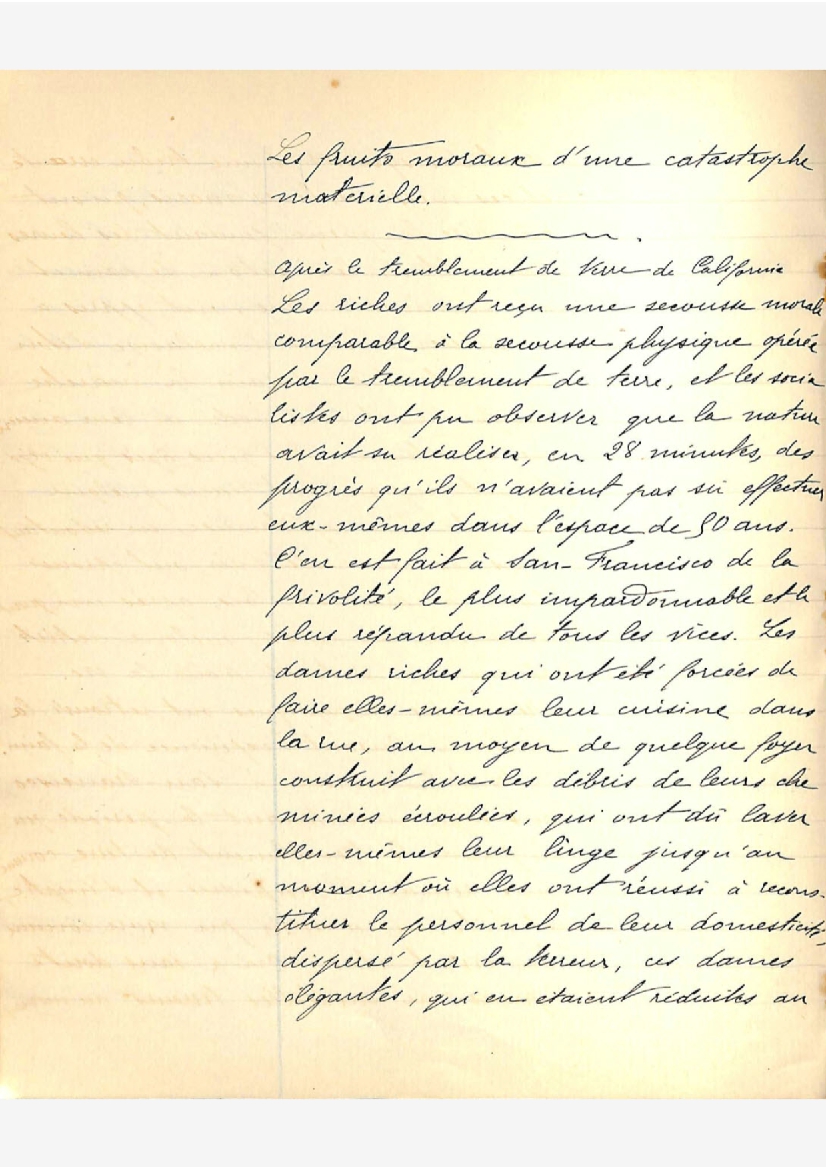 Les fruits moraux d'une catastrophe
matérielle.
Après le tremblement de terre de Californie
Les riches ont reçu une secousse morale
comparable à la secousse physique opérée
par le tremblement de terre, et les socia
listes ont pu observer que la nature
avait su réaliser, en 28 minutes, des
progrès qu'ils n'avaient pas su effectuer
eux-mêmes dans l'espace de 50 ans.
C'en est fait à San-Francisco de la
frivolité, le plus impardonnable et le
plus répandu de tous les vices. Les
dames riches qui ont été forcées de
faire elles-mêmes leur cuisine dans
la rue, au moyen de quelque foyer
construit avec les débris de leurs che
minées écroulées, qui ont dû laver
elles-mêmes leur linge jusqu'au
moment où elles ont réussi à recons-
tituer le personnel de leur domesticité,
dispersé par la terreur, ces dames
élégantes, qui en étaient réduites au